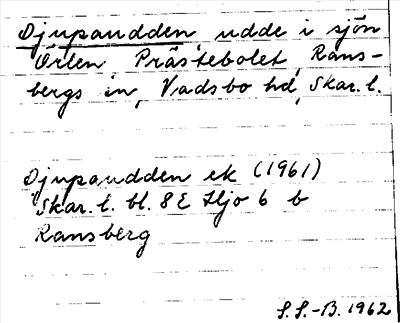 Djupaudden, udde i sjön
Örlen Prästebolet, Rans-
bergs sn, Vadsbo hd, Skar. l.
Djupaudden ek (1961)
Skar. l. bl. 8E Hjo 6 b
Ransberg
S.S.-B. 1962